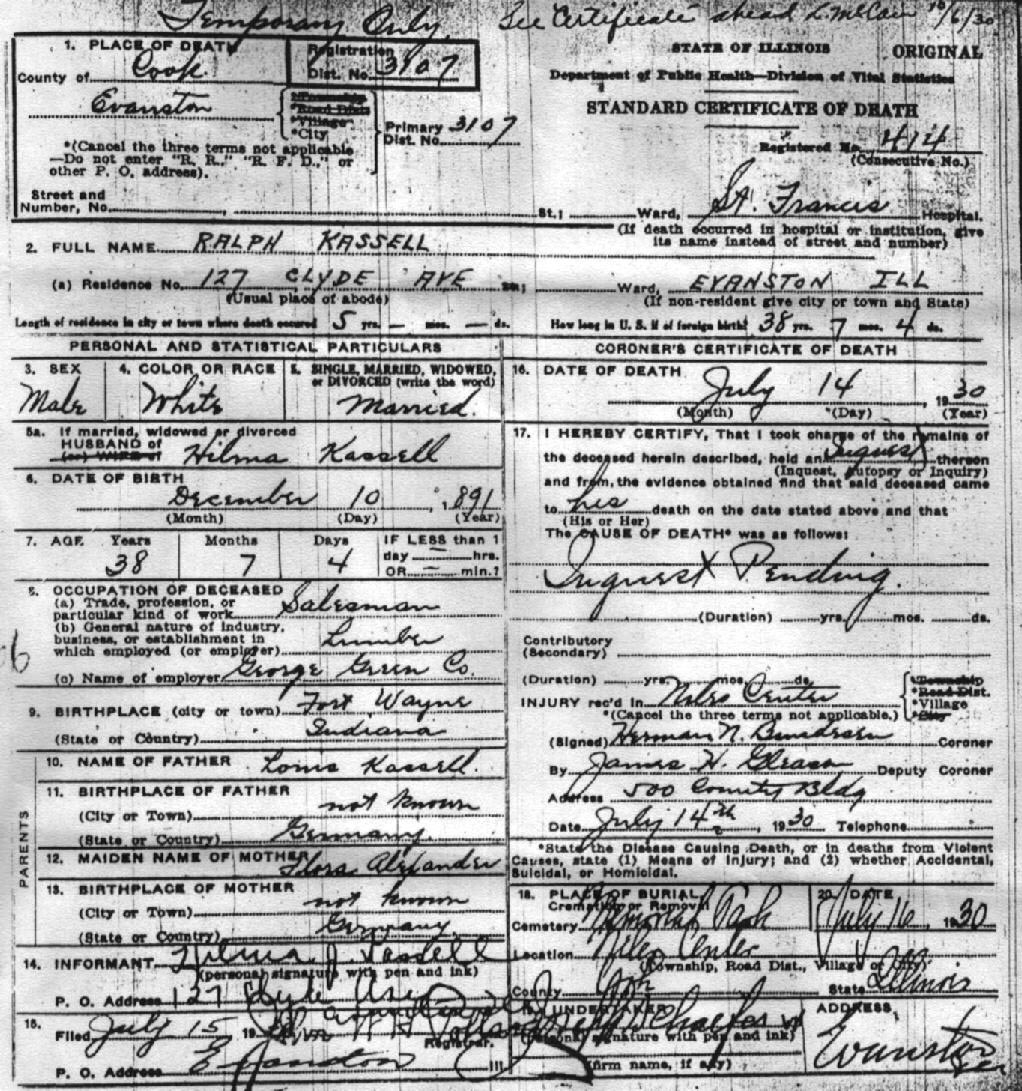 Temporary Only. See Certificate ahead L. McCain 10/6/30
1. PLACE OF DEATH
County of Cook
Registration
Dist. No. 3107
STATE OF ILLINOIS ORIGINAL
Department of Public Health—Division of Vital Statistics
STANDARD CERTIFICATE OF DEATH
Evanston
*Township
*Road Dist.
*Village
*City
Primary
Dist. No. 3107
*(Cancel the three terms not applicable
—Do not enter "R. R.," "R. F. D.," or
other P. O. address).
Registered No. 414
(Consecutive No.)
Street and
Number, No. St.; Ward, St. Francis Hospital.
(If death occurred in hospital or institution, give
its name instead of street and number)
2. FULL NAME RALPH KASSELL
(a) Residence No. 127 CLYDE AVE St.; Ward, EVANSTON ILL
(Usual place of abode) (If non-resident give city or town and State)
Length of residence in city or town where death occured 5 yrs. — mos. — ds. How long in U. S. if of foreign birth? 38 yrs. 7 mos. 4 ds.
PERSONAL AND STATISTICAL PARTICULARS
3. SEX
Male
4. COLOR OR RACE
White
5. SINGLE, MARRIED, WIDOWED,
or DIVORCED (write the word)
Married.
5a. If married, widowed or divorced
HUSBAND of
(or) WIFE of Hilma Kassell
6. DATE OF BIRTH
December 10, 1891
(Month) (Day) (Year)
7. AGE Years Months Days IF LESS than 1
38 7 4 day — hrs.
OR — min.?
8. OCCUPATION OF DECEASED
(a) Trade, profession, or
particular kind of work Salesman
(b) General nature of industry,
business, or establishment in
which employed (or employer) Lumber
(c) Name of employer George Green Co.
9. BIRTHPLACE (city or town) Fort Wayne
(State or Country) Indiana
PARENTS
10. NAME OF FATHER Louis Kassell.
11. BIRTHPLACE OF FATHER
(City or Town) not known
(State or Country) Germany
12. MAIDEN NAME OF MOTHER Flora Alexander
13. BIRTHPLACE OF MOTHER
(City or Town) not known
(State or Country) Germany
14. INFORMANT Hilma J Kassell
(personal signature with pen and ink)
P. O. Address 127 Clyde Ave
15. Filed July 15 19
Registrar.
P. O. Address Evanston Ill
CORONER'S CERTIFICATE OF DEATH
16. DATE OF DEATH
July 14 1930
(Month) (Day) (Year)
17. I HEREBY CERTIFY, That I took charge of the remains of
the deceased herein described, held an Inquest thereon
(Inquest, Autopsy or Inquiry)
and from the evidence obtained find that said deceased came
to his death on the date stated above and that
(His or Her)
The CAUSE OF DEATH* was as follows:
Inquest Pending.
(Duration) yrs. mos. ds.
Contributory
(Secondary)
(Duration) yrs. mos. ds.
INJURY rec'd in Niles Center
*Township
*Road Dist.
*Village
*City
*(Cancel the three terms not applicable.)
(Signed) Herman N. Bundesen Coroner
By James H. Gleason Deputy Coroner
Address 500 County Bldg
Date July 14th, 1930 Telephone
*State the Disease Causing Death, or in deaths from Violent
Causes, state (1) Means of Injury; and (2) whether Accidental,
Suicidal, or Homicidal.
18. PLACE OF BURIAL
Cremation or Removal
Cemetery Memorial Park
20. DATE
July 16, 1930
Location Niles Center
(Township, Road Dist., Village or City)
County Cook State Illinois
19. UNDERTAKER
(personal signature with pen and ink)
(firm name, if any)
ADDRESS
Evanston